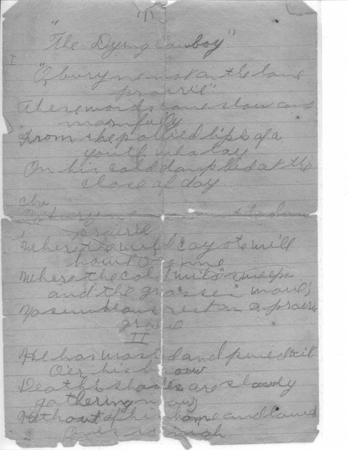 "The Dying Cowboy"
I
"O bury me not on the lone
prairie"
These words came slow and
mournfully
From the pallid lips of a
youth who lay
On his cold damp bed at the
close of day
cho
prairie
Where the wild coyote will
howl o'er me
Where the cold wind sweeps
and the grasses wave
a prairie
grave
II
He has and pined till
O'er his brow
Death's shades are slowly
gathering now
of his home and loved